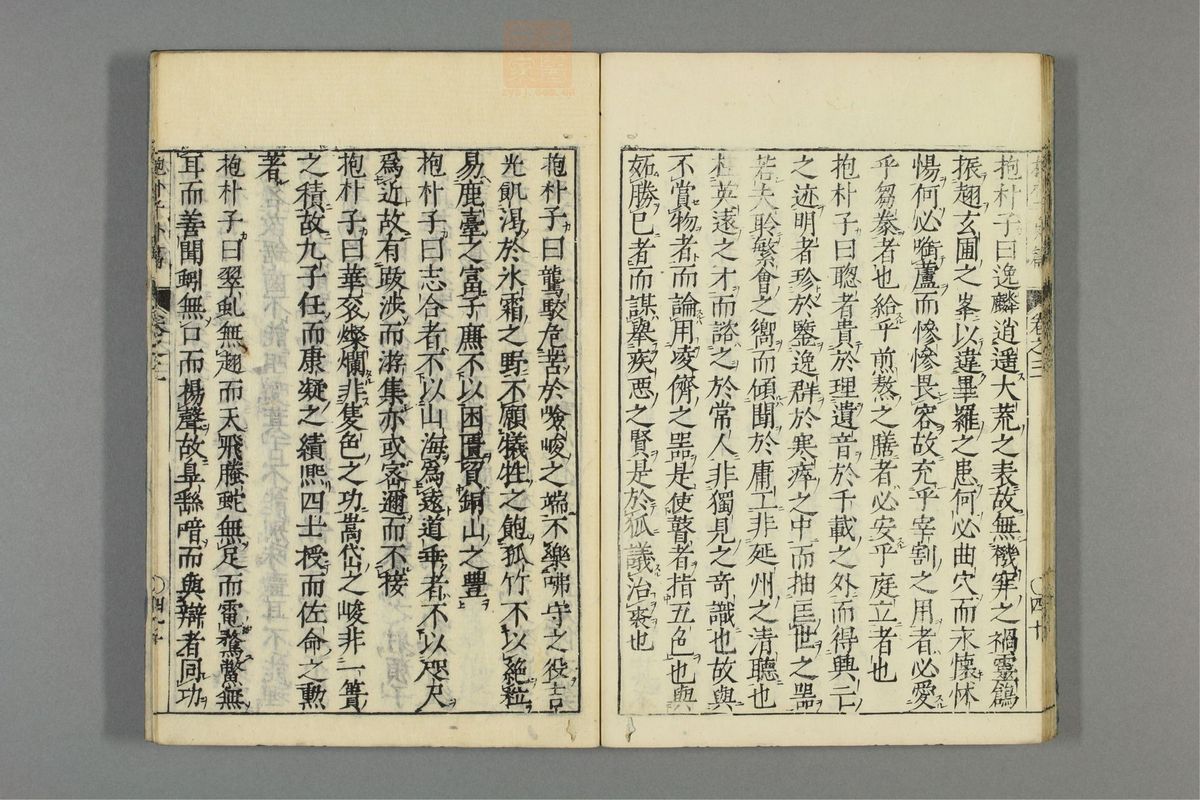 抱朴子曰逸麟逍遙大荒之表故無機穽之禍靈鶴
振翅玄圃之峯以違罼羅之患何必曲穴而永懷怵
惕何必銜蘆而慘慘畏容故充乎宰割之用者必愛
乎芻豢者也給乎煎熬之膳者必安乎庭立者也
抱朴子曰聰者貴於理遺音於千載之外而得興亡
之迹明者珍於鑒逸群於寒瘁之中而抽匡世之器
若夫聆繁會之嚮而傾聞於庸工非延州之清聽也
枉英遠之才而諮之於常人非獨見之奇識也故與
不賞物者而論用凌儕之器是使瞽者指五色也與
妬勝己者而謀舉疾惡之賢是於狐議治裘也
抱朴子曰鷙駮危苦於嶮峻之端不樂咈守之役吉
光飢渴於氷霜之野不願犧牲之飽孤竹不以絶粒
易鹿臺之富子廉不以困匱貿銅山之豐
抱朴子曰志合者不以山海爲遠道乖者不以咫尺
爲近故有跋涉而游集亦或密邇而不接
抱朴子曰華衮燦爛非隻色之功嵩岱之峻非一簣
之積故九子任而康凝之績熙四士授而佐命之勲
著
抱朴子曰翠虬無翅而天飛螣蛇無足而電騖鱉無
耳而善聞蚓無口而揚聲故臯繇喑而與辯者同功
抱朴子外篇
卷之三